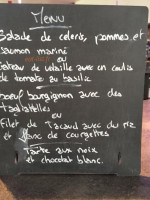 Menu
Salade de celeris, pommes et
saumon mariné
ou
Gateau de volaille avec un coulis
de tomate au basilic
boeuf bourguignon avec des
tagliatelles
ou
Filet de Tacaud avec du riz
et flanc de courgettes
Tarte aux noix
et chocolat blanc.